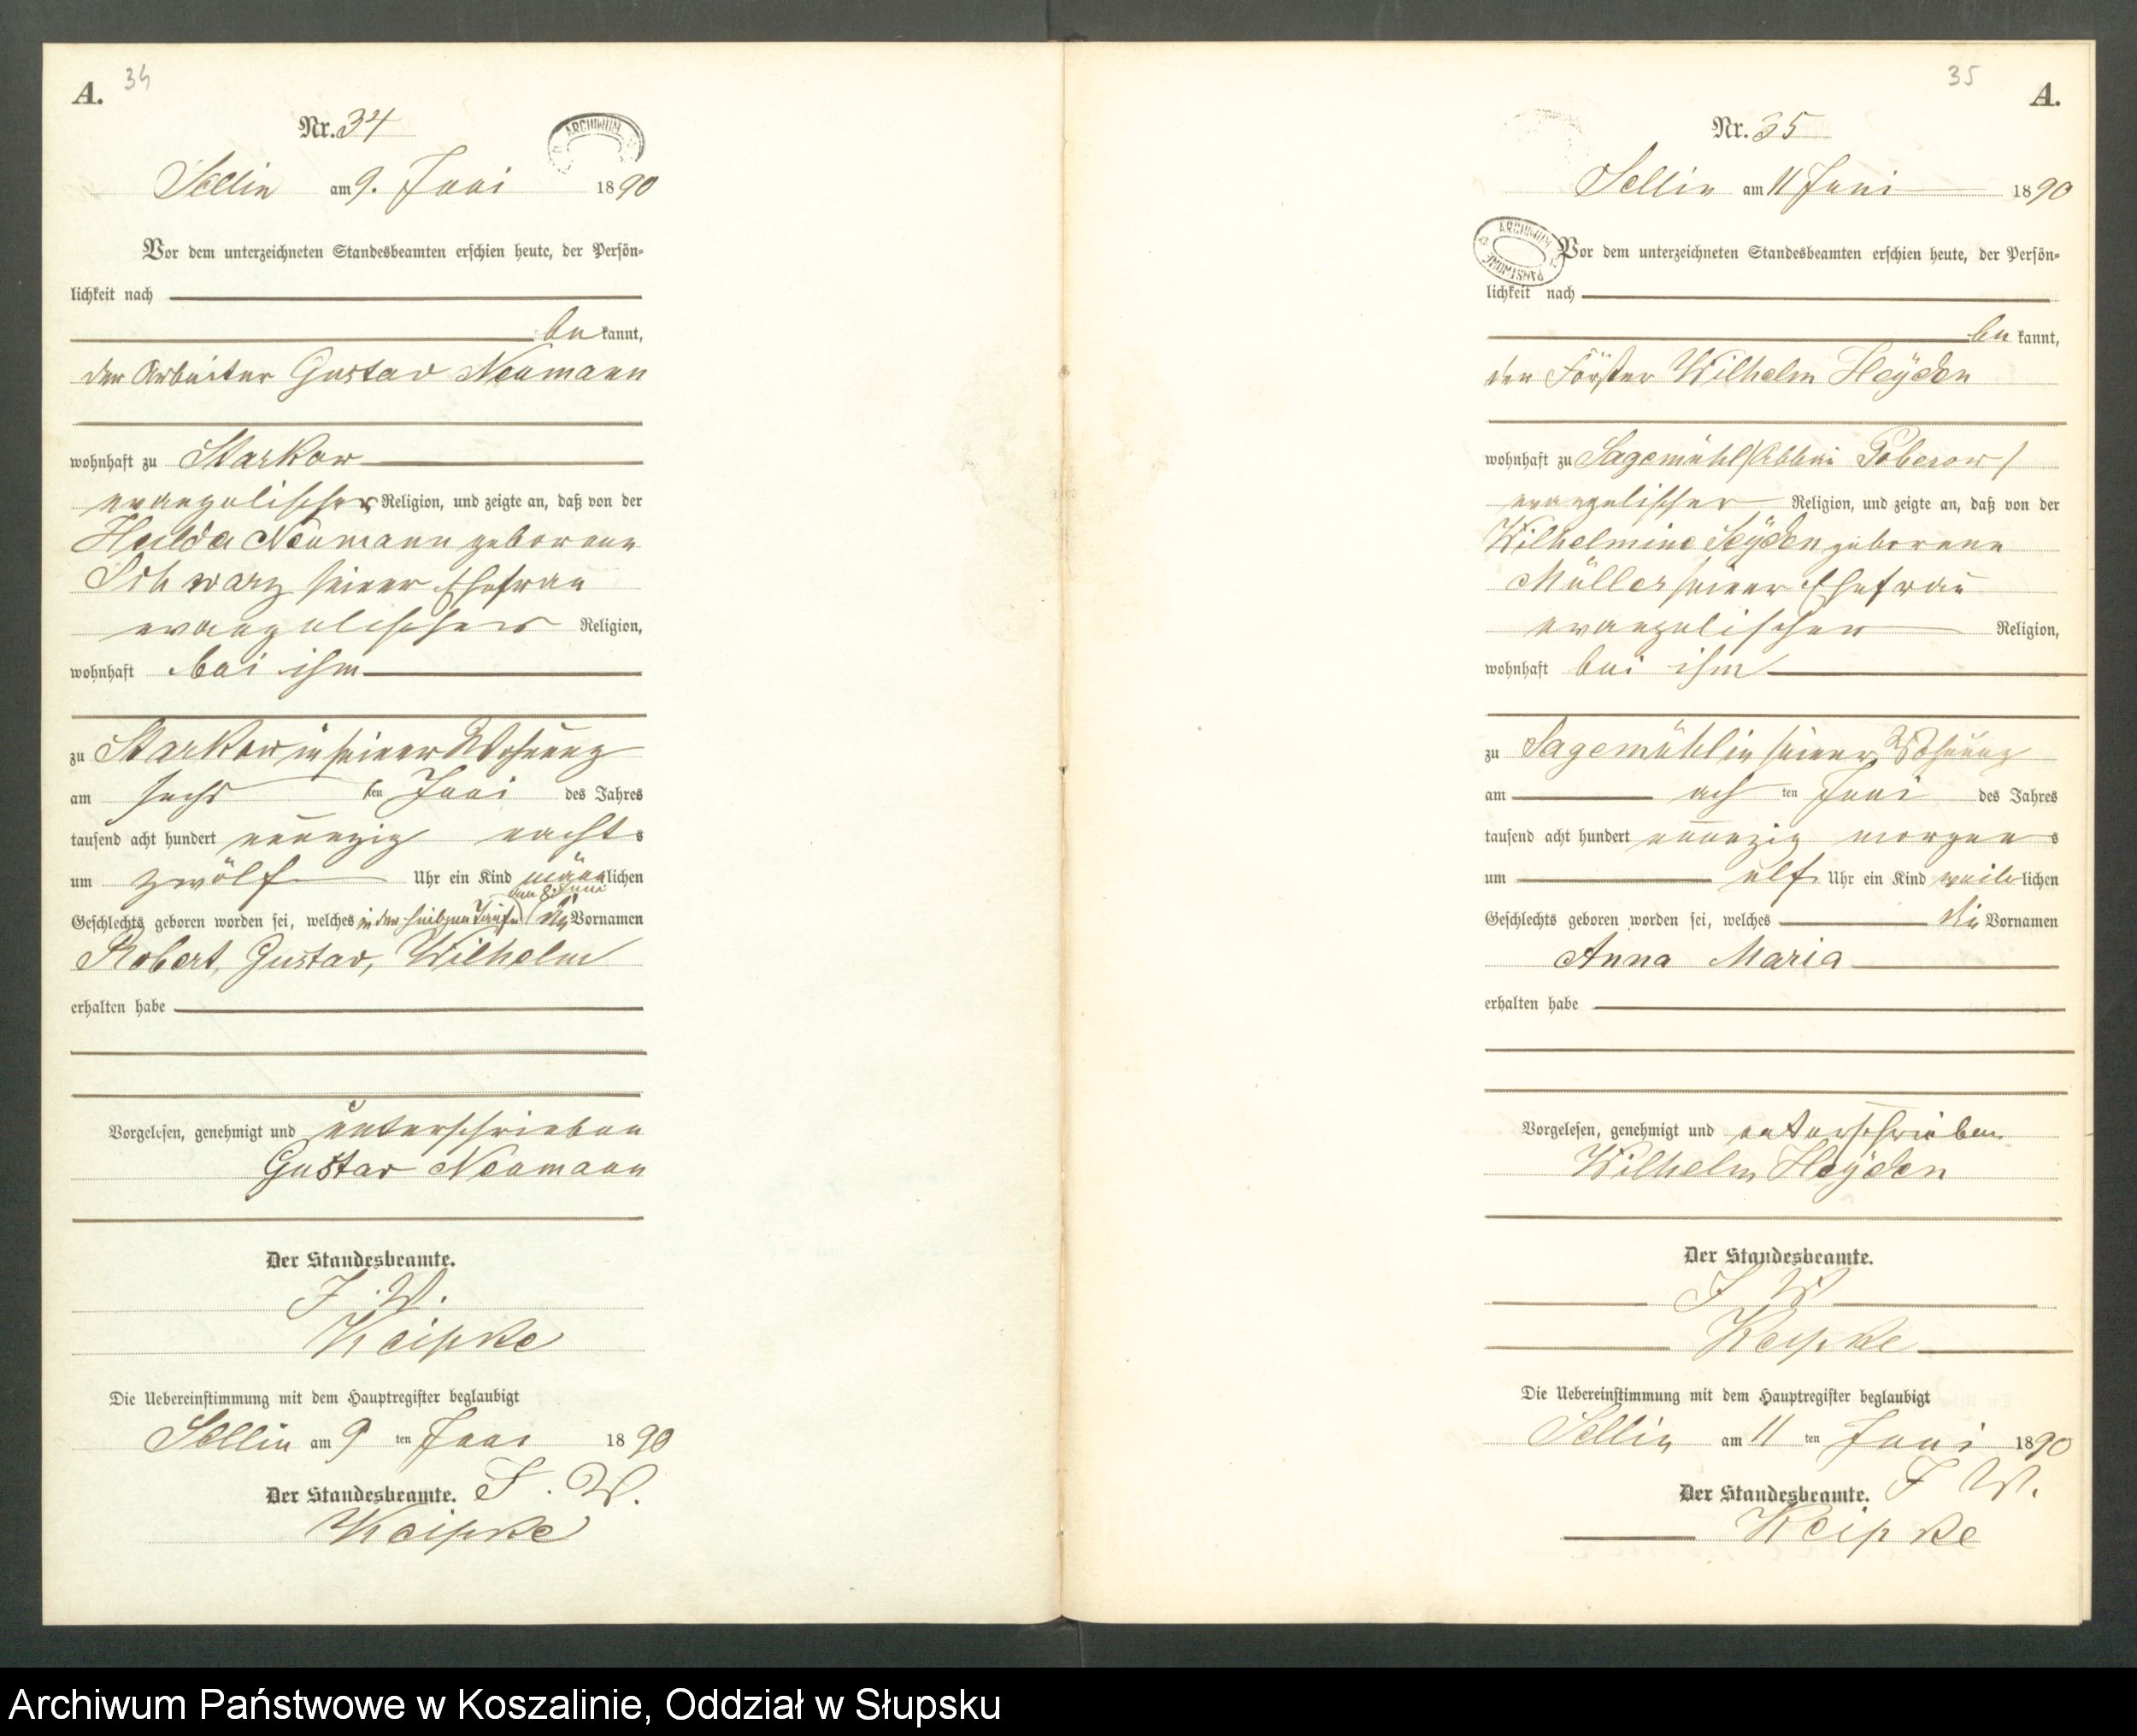 A. 34
Nr. 34
ARCHIWUM
Sellin am 9. Juni 1890
Vor dem unterzeichneten Standesbeamten erschien heute, der Persön-
lichkeit nach
be kannt,
der Arbeiter Gustav Neumann
wohnhaft zu Starkow
evangelischer Religion, und zeigte an, daß von der
Hulda Neumann geborene
Schwarz seiner Ehefrau
evangelischer Religion,
wohnhaft bei ihm
zu Starkow in seiner Wohnung
am sechs ten Juni des Jahres
tausend acht hundert neunzig nachts
um zwölf Uhr ein Kind männlichen
am 8. Juni
Geschlechts geboren worden sei, welches in der heiligen Taufe die Vornamen
Robert, Gustav, Wilhelm
erhalten habe
Vorgelesen, genehmigt und unterschrieben
Gustav Neumann
Der Standesbeamte.
J. W.
Keipke
Die Uebereinstimmung mit dem Hauptregister beglaubigt
Sellin am 9 ten Juni 1890
Der Standesbeamte. J. W.
Keipke
35 A.
Nr. 35
Sellin am 11 Juni 1890
ARCHIWUM PAŃSTWOWE
Vor dem unterzeichneten Standesbeamten erschien heute, der Persön-
lichkeit nach
be kannt,
der Förster Wilhelm Heÿden
wohnhaft zu Sagemühl (Abbau Poberow)
evangelischer Religion, und zeigte an, daß von der
Wilhelmine Heÿden geborene
Müller seiner Ehefrau
evangelischer Religion,
wohnhaft bei ihm
zu Sagemühl in seiner Wohnung
am ach ten Juni des Jahres
tausend acht hundert neunzig morgens
um elf Uhr ein Kind weiblichen
Geschlechts geboren worden sei, welches die Vornamen
Anna Maria
erhalten habe
Vorgelesen, genehmigt und unterschrieben
Wilhelm Heÿden
Der Standesbeamte.
J W
Keipke
Die Uebereinstimmung mit dem Hauptregister beglaubigt
Sellin am 11 ten Juni 1890
Der Standesbeamte. J W.
Keipke
Archiwum Państwowe w Koszalinie, Oddział w Słupsku